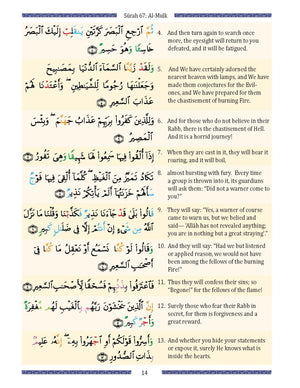 Sūrah 67: Al-Mulk
ثُمَّ ٱرْجِعِ ٱلْبَصَرَ كَرَّتَيْنِ يَنقَلِبْ إِلَيْكَ ٱلْبَصَرُ
خَاسِئًا وَهُوَ حَسِيرٌ ٤
4. And then turn again to search once
more, the eyesight will return to you
defeated, and it will be fatigued.
وَلَقَدْ زَيَّنَّا ٱلسَّمَآءَ ٱلدُّنْيَا بِمَصَٰبِيحَ
وَجَعَلْنَٰهَا رُجُومًا لِّلشَّيَٰطِينِ ۖ وَأَعْتَدْنَا لَهُمْ
عَذَابَ ٱلسَّعِيرِ ٥
5. And We have certainly adorned the
nearest heaven with lamps, and We have
made them conjectures for the Evil-
ones, and We have prepared for them
the chastisement of burning Fire.
وَلِلَّذِينَ كَفَرُوا۟ بِرَبِّهِمْ عَذَابُ جَهَنَّمَ ۖ وَبِئْسَ
ٱلْمَصِيرُ ٦
6. And for those who do not believe in their
Rabb, there is the chastisement of Hell.
And it is a horrid journey!
إِذَآ أُلْقُوا۟ فِيهَا سَمِعُوا۟ لَهَا شَهِيقًا وَهِىَ تَفُورُ ٧
7. When they are cast in it, they will hear it
roaring, and it will boil,
تَكَادُ تَمَيَّزُ مِنَ ٱلْغَيْظِ ۖ كُلَّمَآ أُلْقِىَ فِيهَا فَوْجٌ
سَأَلَهُمْ خَزَنَتُهَآ أَلَمْ يَأْتِكُمْ نَذِيرٌ ٨
8. almost bursting with fury. Every time
a group is thrown into it, its guardians
will ask them: "Did not a warner come to
you?"
قَالُوا۟ بَلَىٰ قَدْ جَآءَنَا نَذِيرٌ فَكَذَّبْنَا وَقُلْنَا مَا نَزَّلَ
ٱللَّهُ مِن شَىْءٍ إِنْ أَنتُمْ إِلَّا فِى ضَلَٰلٍ كَبِيرٍ ٩
9. They will say: "Yes, a warner of course
came to warn us, but we belied and
said— 'Allāh has not revealed anything;
you are in nothing but a great straying'."
وَقَالُوا۟ لَوْ كُنَّا نَسْمَعُ أَوْ نَعْقِلُ مَا كُنَّا فِىٓ
أَصْحَٰبِ ٱلسَّعِيرِ ١٠
10. And they will say: "Had we but listened
or applied reason, we would not have
been among the fellows of the burning
Fire!"
فَٱعْتَرَفُوا۟ بِذَنۢبِهِمْ فَسُحْقًا لِّأَصْحَٰبِ ٱلسَّعِيرِ ١١
11. Thus they will confess their sins; so
"Begone!" for the fellows of the flame!
إِنَّ ٱلَّذِينَ يَخْشَوْنَ رَبَّهُم بِٱلْغَيْبِ لَهُم مَّغْفِرَةٌ
وَأَجْرٌ كَبِيرٌ ١٢
12. Surely those who fear their Rabb in
secret, for them is forgiveness and a
great reward.
وَأَسِرُّوا۟ قَوْلَكُمْ أَوِ ٱجْهَرُوا۟ بِهِۦٓ ۖ إِنَّهُۥ عَلِيمٌۢ
بِذَاتِ ٱلصُّدُورِ ١٣
13. And whether you hide your statements
or expose it, surely He knows what is
inside the hearts.
14